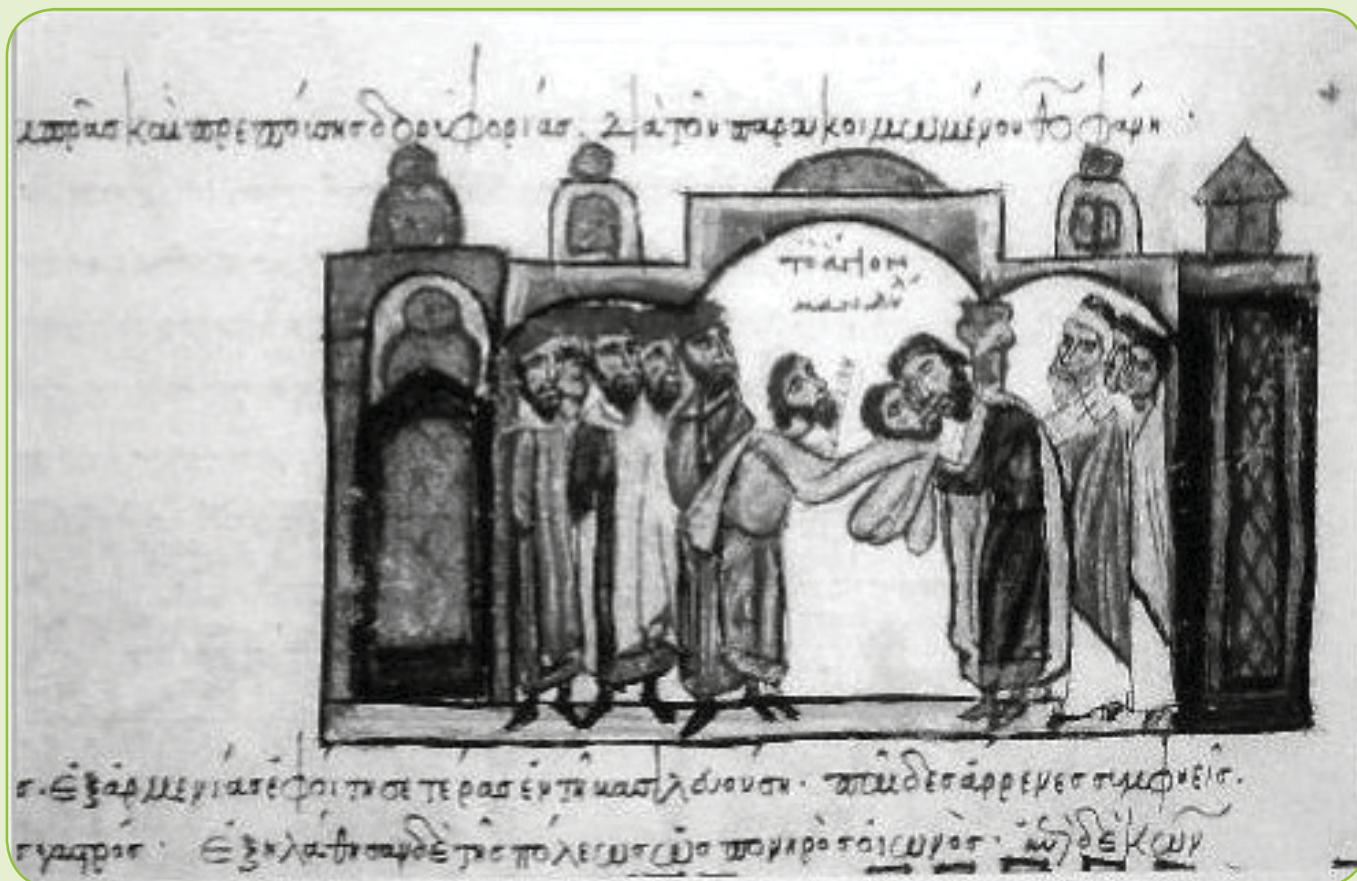 μπρᾶς καὶ πρεπούσης δορυφορίας. διὰ τοῦ παρακοιμωμένου θεοφάνη
τὸ ἅγιον
μανδήλ
ἐξ ἀρμενίας ἐφοίτησε τέρας ἐν τῇ βασιλευούσῃ. παῖδες ἄρρενες συμφυεῖς.
γαστρός. ἐξηλάθησαν δὲ τῆς πόλεως ὡς πονηρὸς οἰωνός.